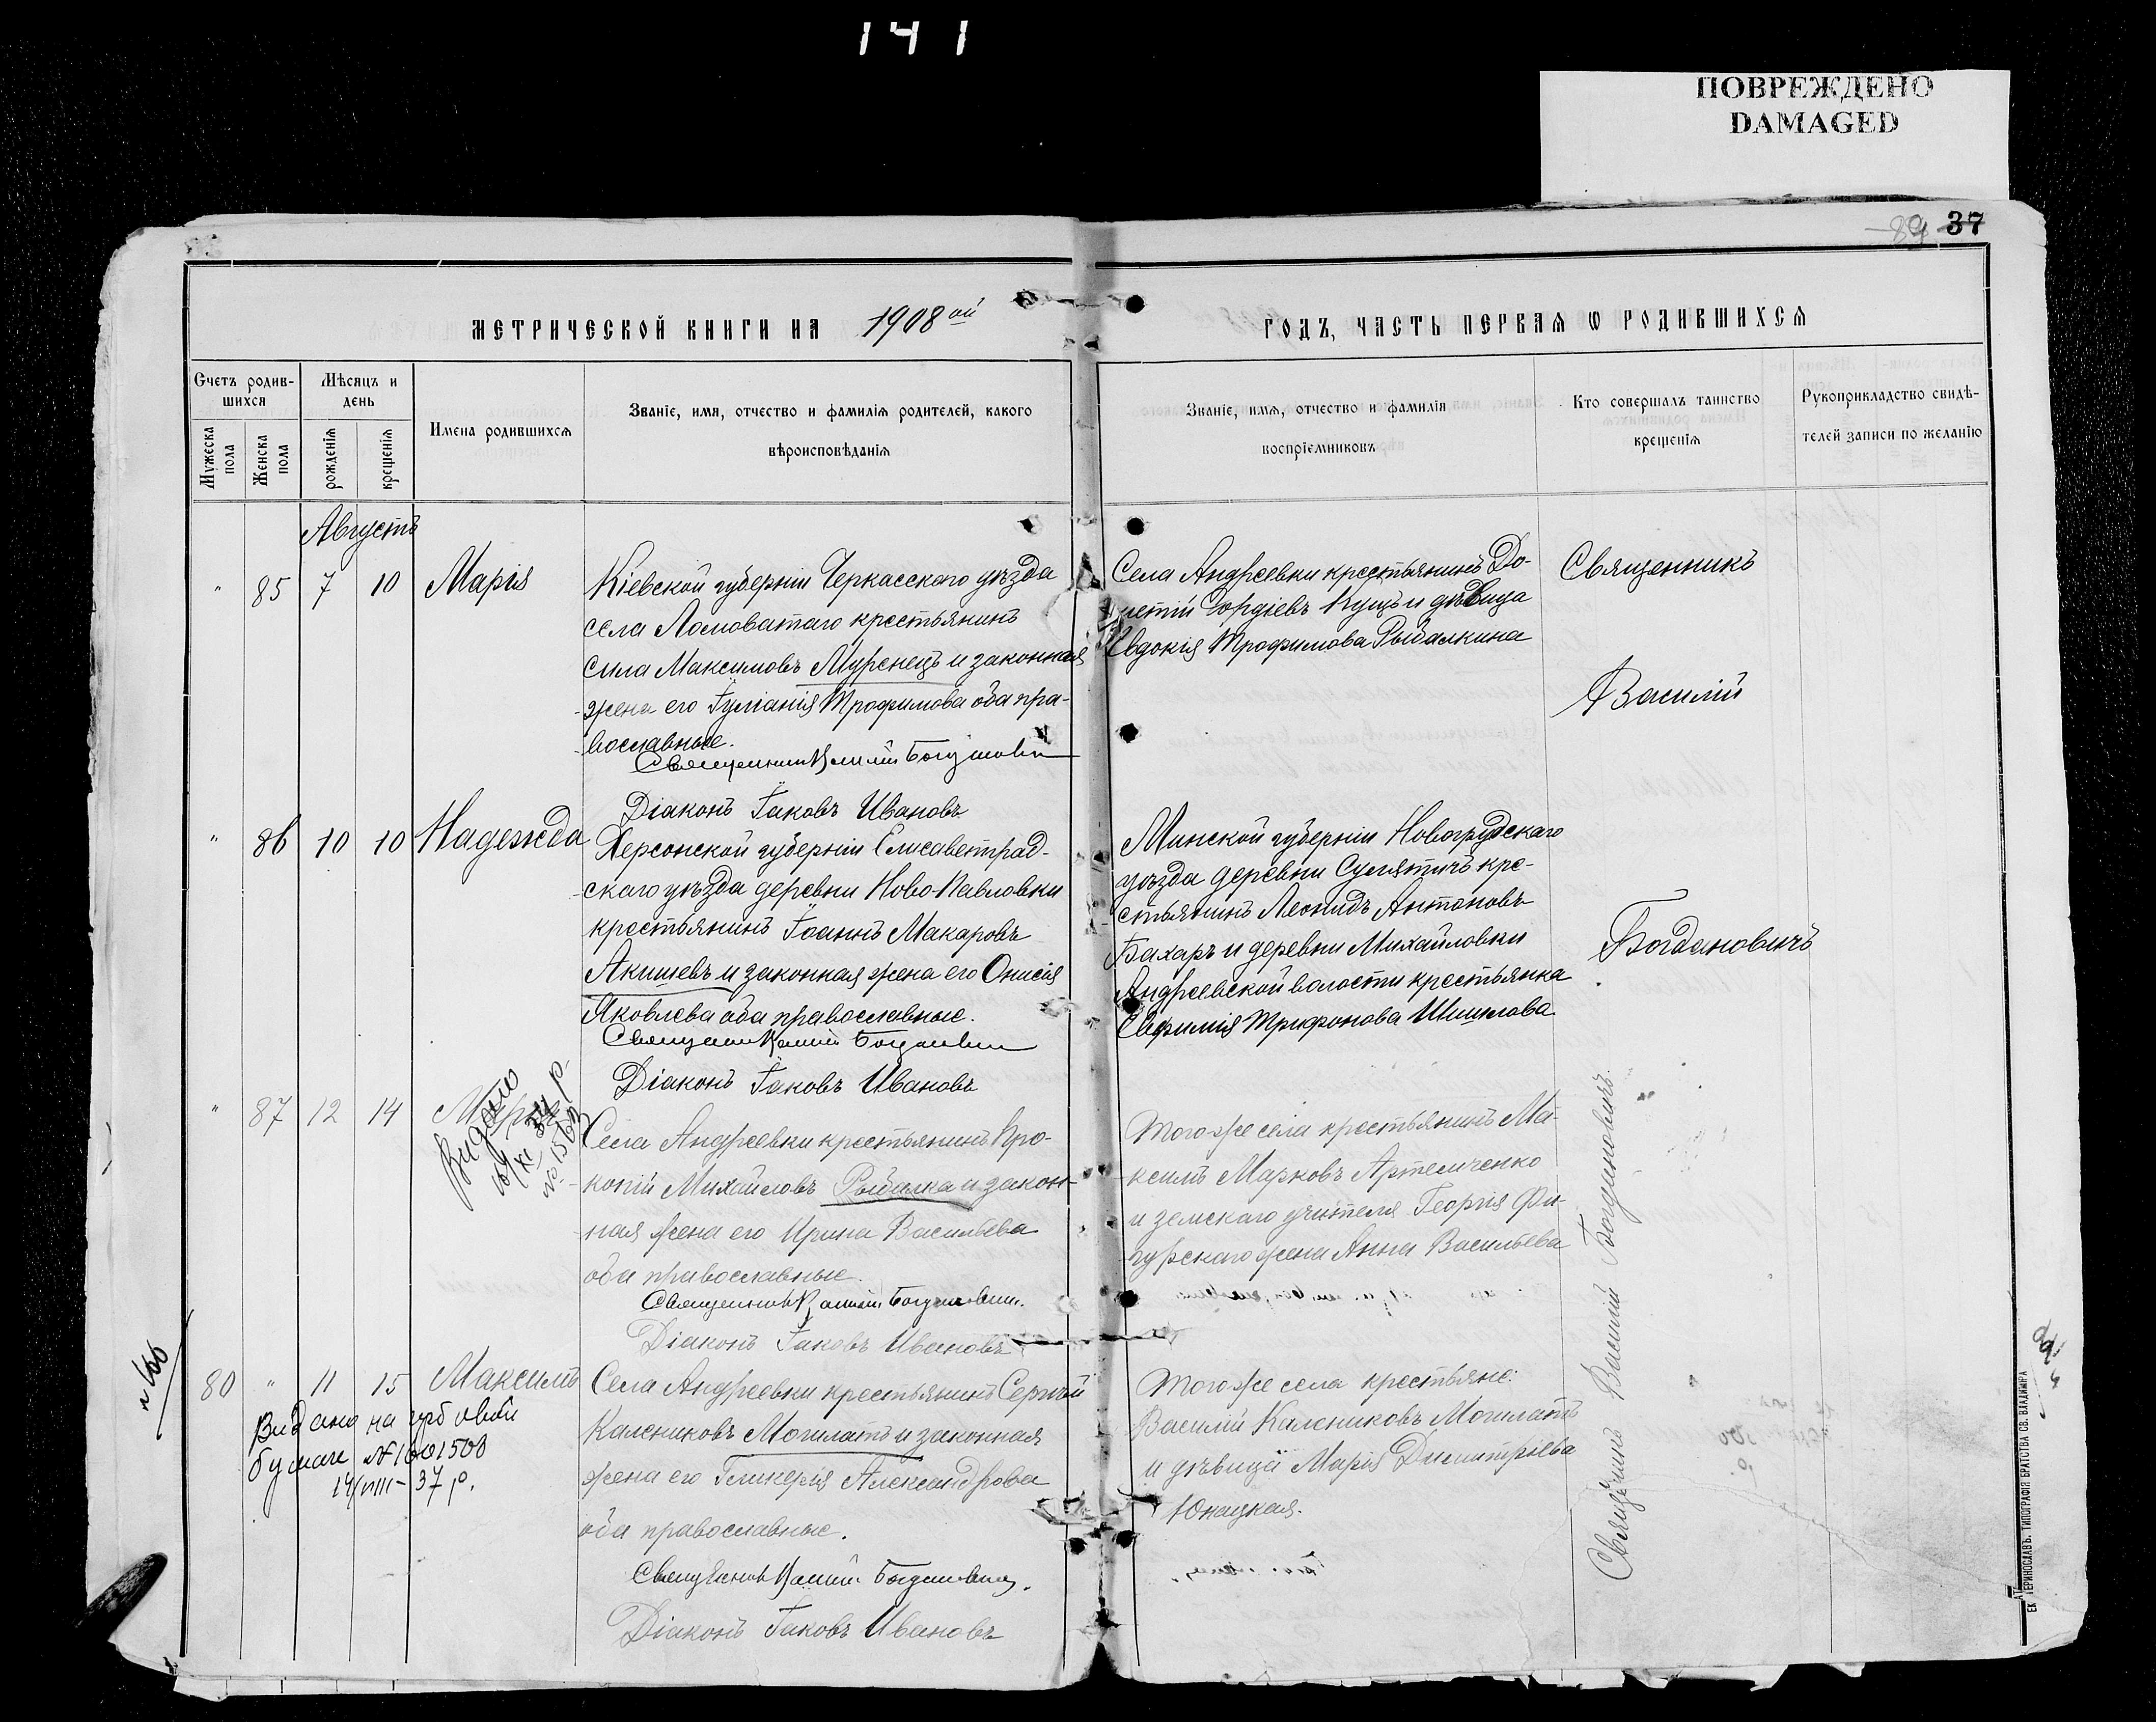 141
ПОВРЕЖДЕНО
DAMAGED
37
МЕТРИЧЕСКОЙ КНИГИ НА 1908 ой
ГОДЪ, ЧАСТЬ ПЕРВАЯ Ѡ РОДИВШИХСЯ
Счетъ родив-
шихся
Мѣсяцъ и
день
Мужеска
пола
Женска
пола
рожденія
крещенія
Имена родившихся
Званіе, имя, отчество и фамилія родителей, какого
вѣроисповѣданія
Званіе, имя, отчество и фамилія
воспріемниковъ
Кто совершалъ таинство
крещенія
Рукоприкладство свидѣ-
телей записи по желанію
Августъ
" 85 7 10 Марія
Кіевской губерніи Черкасскаго уѣзда
села Ломоватаго крестьянинъ
Сила Максимовъ Муренецъ и законная
жена его Іуліанія Трофимова оба пра-
вославные.
Священникъ Василій Богдановичъ
Діаконъ Іаковъ Ивановъ
Села Андреевки крестьянинъ До-
Гордіевъ Куцъ и дѣвица
Евдокія Трофимова Рыбалкина
Священникъ
Василій
Богдановичъ
" 86 10 10 Надежда
Херсонской губерніи Елисаветград-
скаго уѣзда деревни Ново-Павловки
крестьянинъ Іоаннъ Макаровъ
Акишевъ и законная жена его Онисія
Яковлева оба православные.
Священникъ Василій Богдановичъ
Діаконъ Іаковъ Ивановъ
Минской губерніи Новогрудскаго
уѣзда деревни Сулятичъ кре-
стьянинъ Леонидъ Антоновъ
Бахаръ и деревни Михайловки
Андреевской волости крестьянка
Евфимія Трифонова Шишлова
" 87 12 14
Видано
Села Андреевки крестьянинъ Про-
копій Михайловъ Рыбалка и закон-
ная жена его Ирина Васильева
оба православные.
Священникъ Василій Богдановичъ.
Діаконъ Іаковъ Ивановъ
Того-же села крестьянинъ Ма-
ксимъ Марковъ Артемченко
и земскаго учителя Георгія Фи-
гурскаго жена Анна Васильева
Священникъ Василій Богдановичъ.
80 " 11 15 Максимъ
Видано на
бумаги
14/VIII-37 р.
Села Андреевки крестьянинъ Сергій
Калениковъ Могилатъ и законная
жена его Гликерія Александрова
оба православные.
Священникъ Василій Богдановичъ.
Діаконъ Іаковъ Ивановъ
Того-же села крестьяне:
Василій Калениковъ Могилатъ
и дѣвица Марія Димитріева
Юнацкая.
ЕКАТЕРИНОСЛАВЪ. ТИПОГРАФІЯ БРАТСТВА СВ. ВЛАДИМІРА